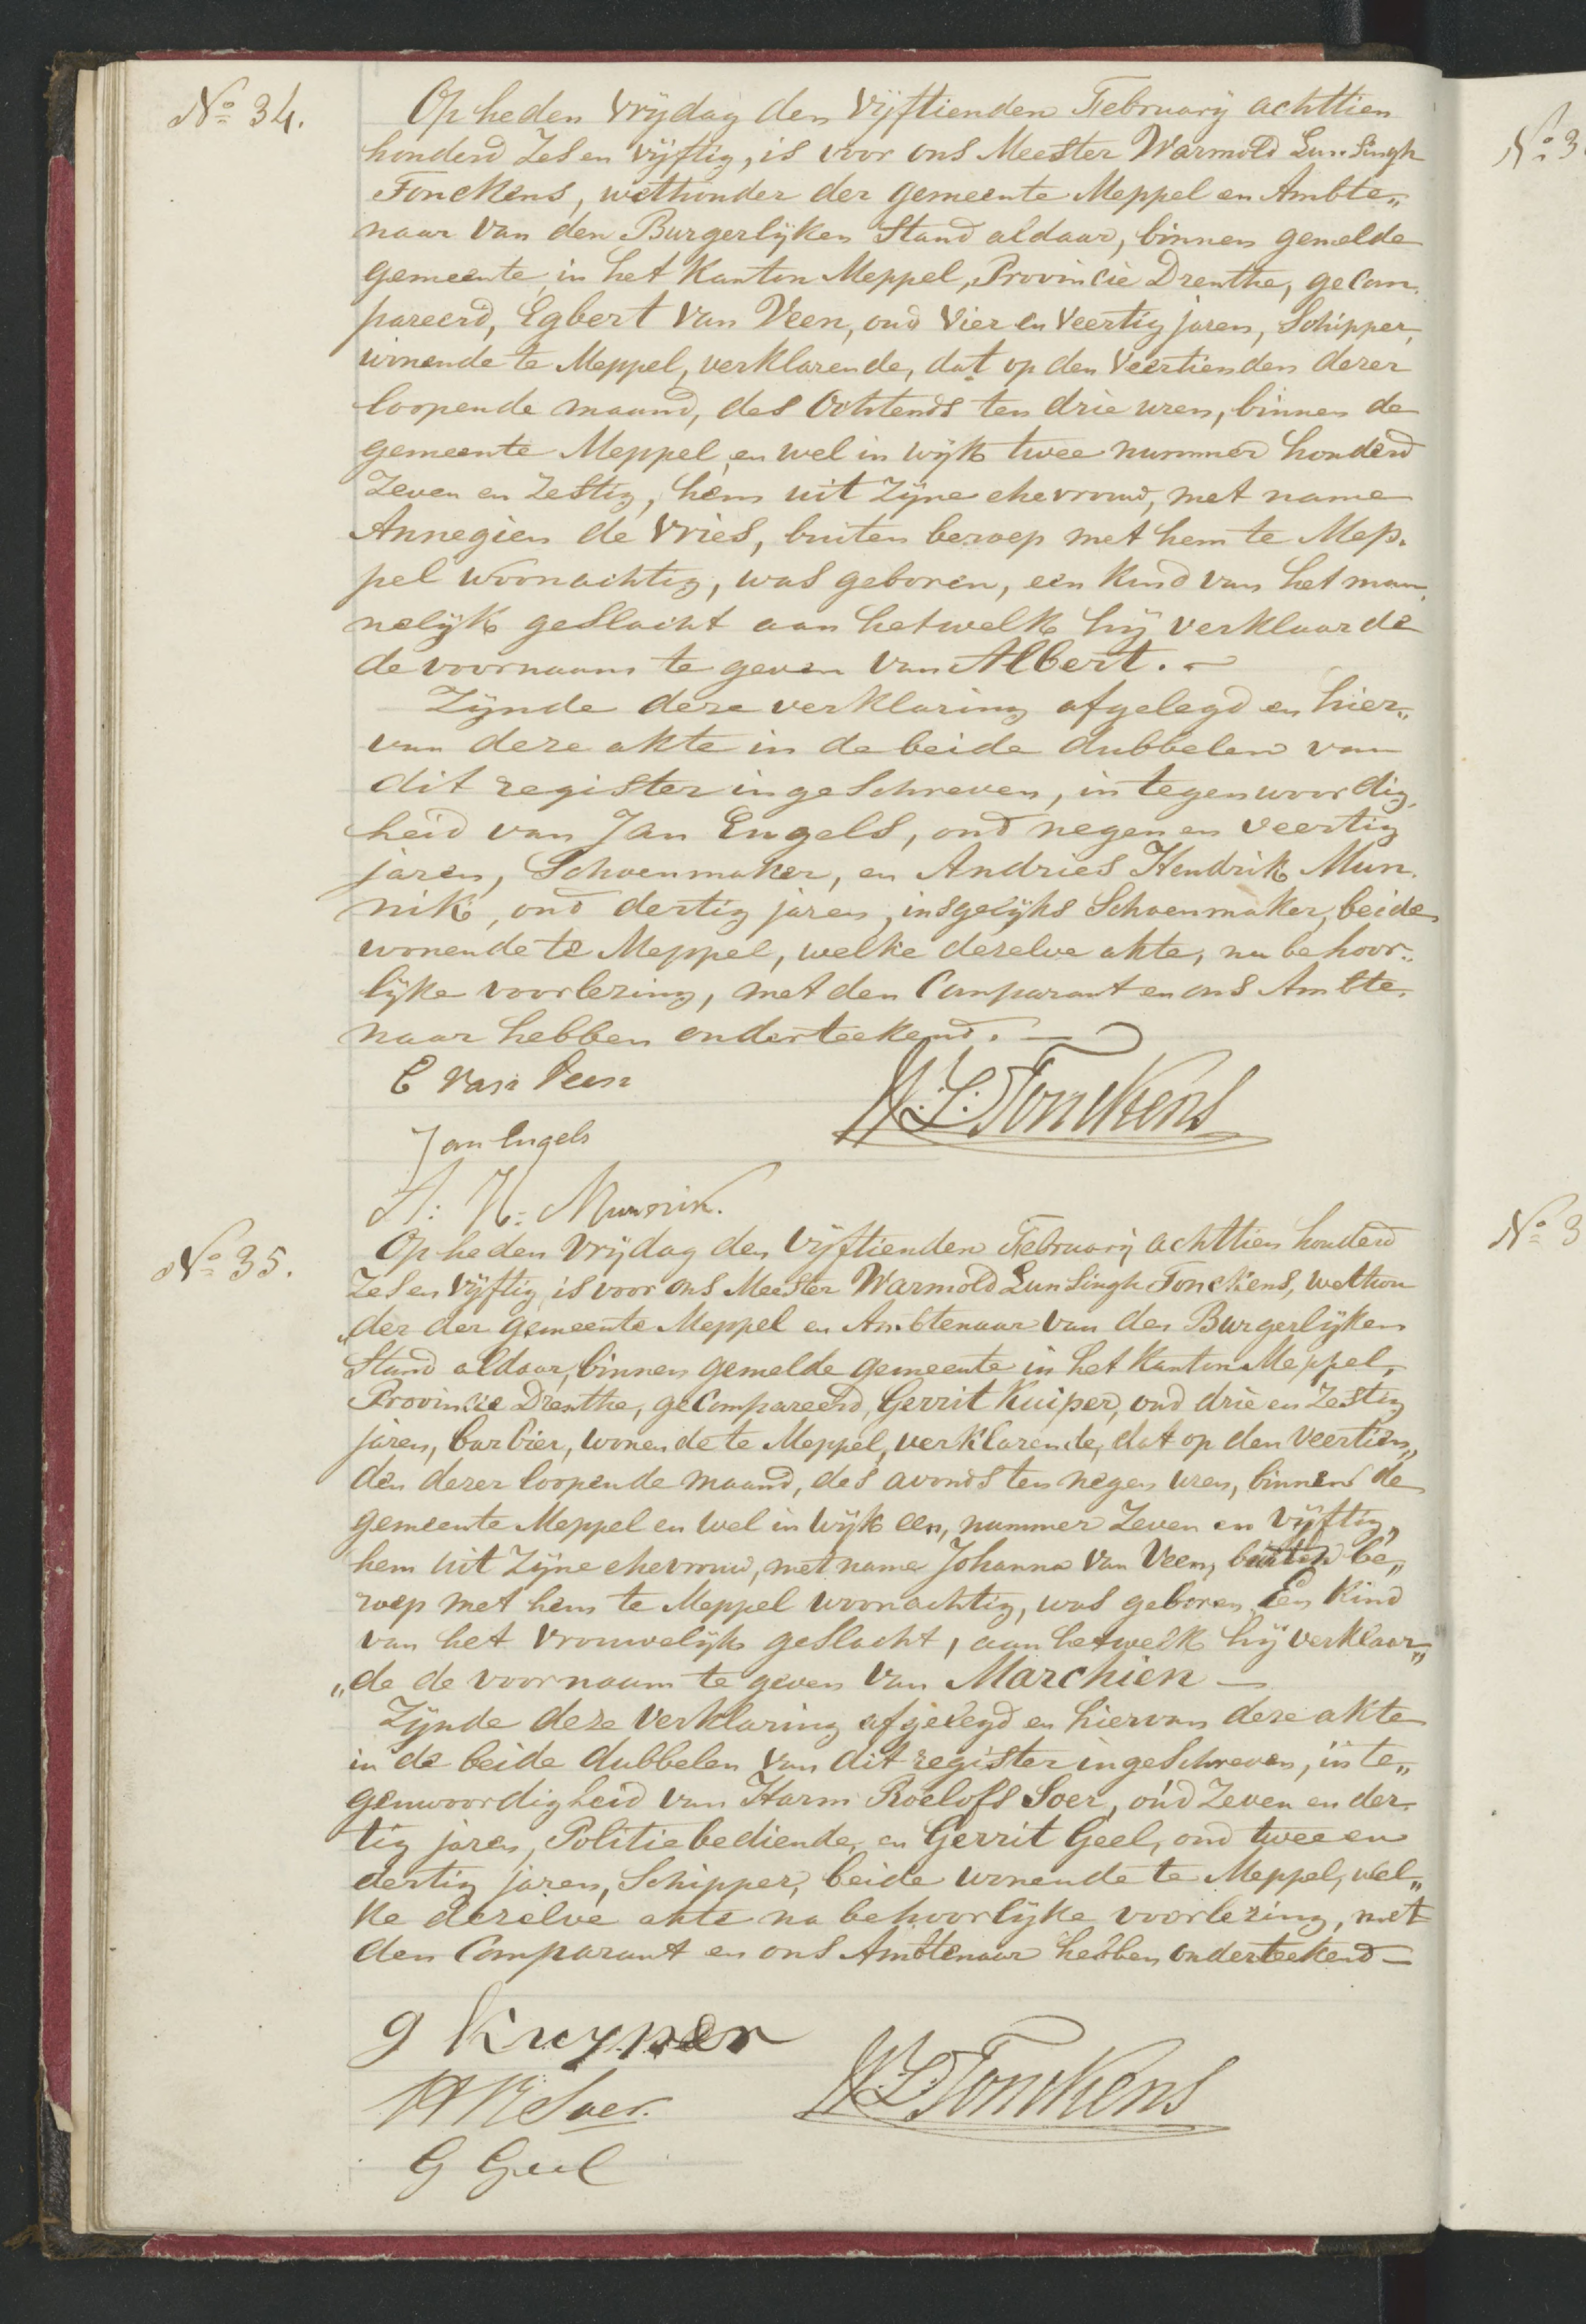 No 34.
Op heden Vrijdag den Vijftienden February achttien
honderd Zes en Vijftig, is voor ons Meester Warmold Lunsingh
Tonckens, wethouder der gemeente Meppel en Ambte„
naar Van den Burgerlijken Stand aldaar, binnen gemelde
gemeente in het Kanton Meppel, Provincie Drenthe, gecom„
pareerd, Egbert Van Veen, oud Vier en Veertig jaren, Schipper,
wonende te Meppel, verklarende, dat op den Veertienden dezer
loopende maand, des Ochtends ten drie uren, binnen de
gemeente Meppel en wel in wijk twee nummer honderd
Zeven en Zestig, hem uit Zijne ehevrouw, met name
Annegien de Vries, buiten beroep met hem te Mep.
pel woonachtig, was geboren, een Kind van het man„
nelijk geslacht aan hetwelk hij verklaarde
de voornaam te geven van Albert. —
Zijnde deze verklaring afgelegd en hier„
van deze akte in de beide dubbelen van
dit register ingeschreven, in tegenwoordig„
heid van Jan Engels, oud negen en veertig
jaren, Schoenmaker, en Andries Hendrik Mun.
nik, oud dertig jaren, insgelijks Schoenmaker, beide
wonende te Meppel, welke dezelve akte, na behoor„
lijke voorlezing, met den Comparant en ons Ambte„
naar hebben onderteekend. —
E van Veen
W. L. Tonckens
Jan Engels
A: H: Munnik.
No 35.
Op heden Vrijdag den Vijftienden February achttien honderd
Zes en Vijftig, is voor ons Meester Warmold Lunsingh Tonckens, wethou
„der der gemeente Meppel en Ambtenaar Van den Burgerlijken
Stand aldaar, binnen gemelde gemeente in het Kanton Meppel,
Provincie Drenthe, gecompareerd, Gerrit Kuiper, oud drie en Zestig
jaren, barbier, wonende te Meppel, verklarende, dat op den Veertien„
den dezer loopende maand, des avonds ten negen uren, binnen de
gemeente Meppel en wel in wijk een, nummer Zeven en Vijftig,
hem uit Zijne ehevrouw, met name Johanna Van Veen, buiten be„
roep met hem te Meppel woonachtig, was geboren, Een Kind
van het Vrouwelijk geslacht, aan hetwelk hij verklaar„
„de de voornaam te geven Van Marchien —
Zijnde deze Verklaring afgelegd en hiervan deze akte
in de beide dubbelen Van dit register ingeschreven, in te„
genwoordigheid van Harm Roelofs Soer, oud Zeven en der„
tig jaren, Politiebediende, en Gerrit Geel, oud twee en
dertig jaren, Schipper, beide wonende te Meppel, wel„
ke dezelve akte na behoorlijke voorlezing, met
den Comparant en ons Ambtenaar hebben onderteekend —
G Kuyper
W. L. Tonckens
H R Soer.
G Geel
No 3
No 3